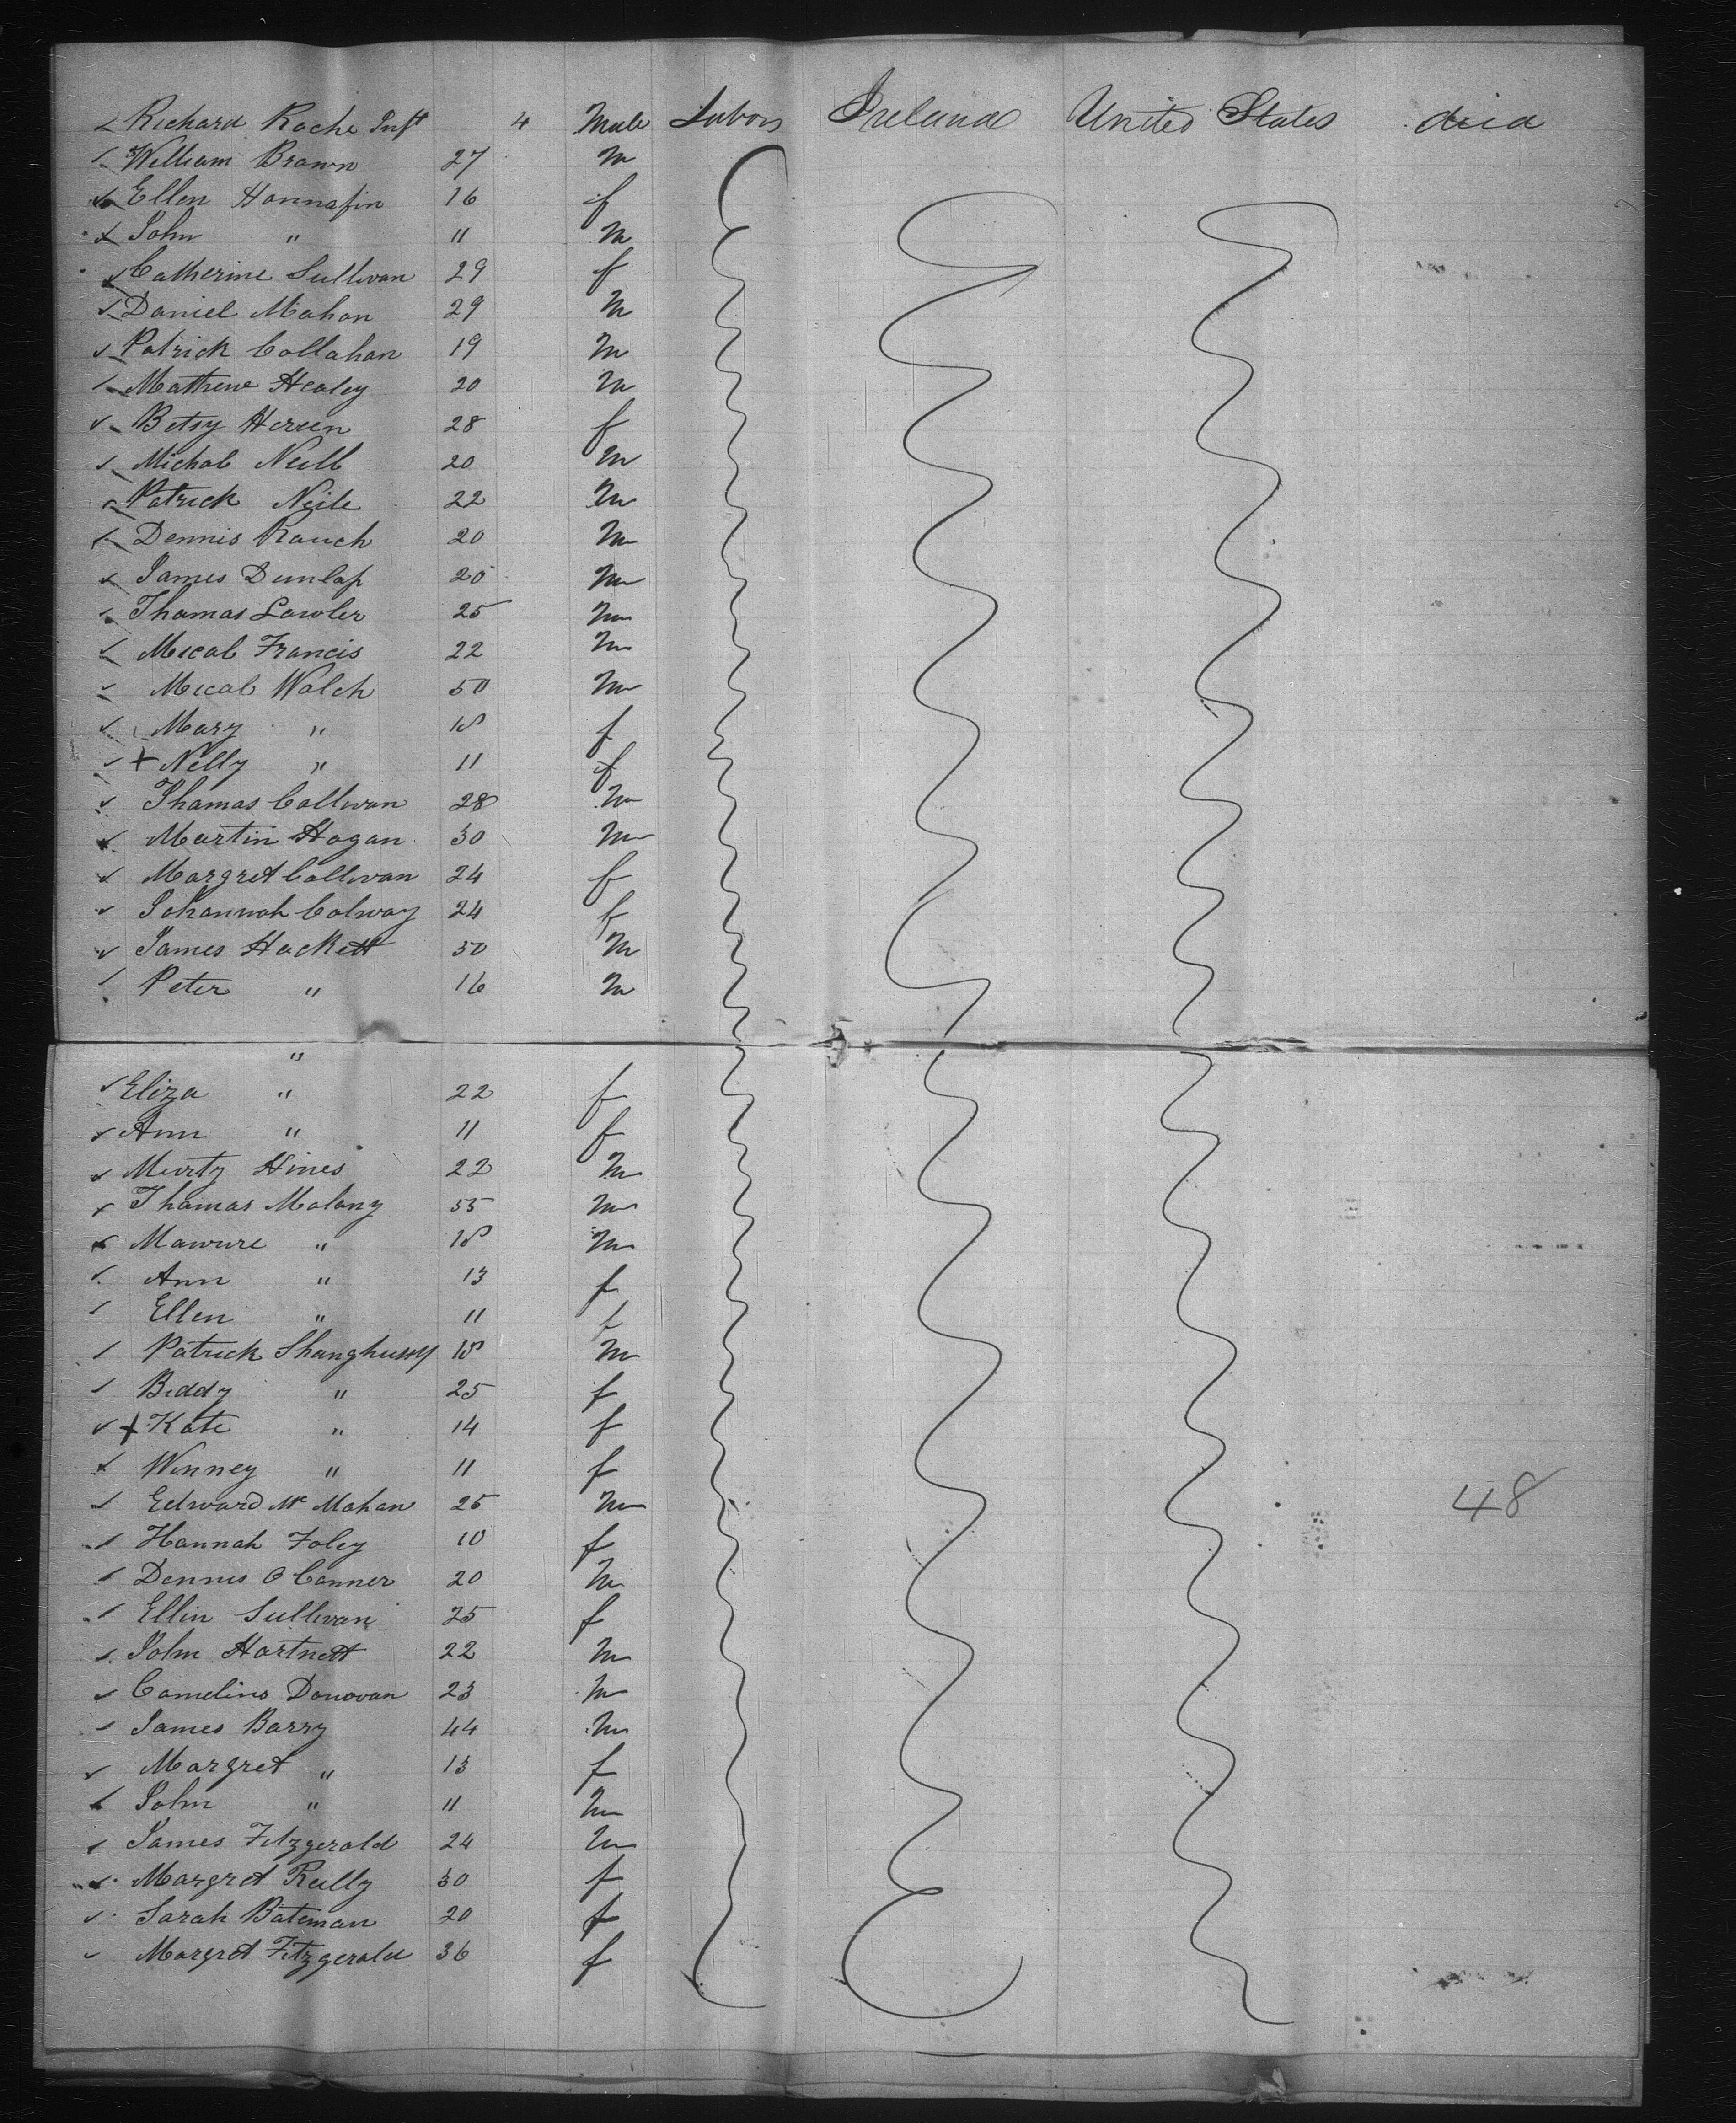 Richard Roche Inft 4 Male Labors Ireland United States died
William Brown 27 m
Ellen Hannafin 16 f
John " 11 m
Catherine Sullivan 29 f
Daniel Mahan 29 m
Patrick Callahan 19 m
Mathew Healey 20 m
Betsy Hereen 28 f
Michal Neill 20 m
Patrick Neile 22 m
Dennis Rauch 20 m
James Dunlap 20 m
Thamas Lawler 25 m
Mical Francis 22 m
Mical Walch 50 m
Mary " 18 f
+ Nelly " 11 f
Thamas Callivan 28 m
Martin Hogan 30 m
Margret Callivan 24 f
Johannah Calway 24 f
James Hackett 50 m
Peter " 16 m
"
Eliza " 22 f
Ann " 11 f
Murty Hines 22 m
Thamas Malany 55 m
Mawure " 18 m
Ann " 13 f
Ellen " 11 f
Patrick Shanghussy 18 m
Biddy " 25 f
+ Kate " 14 f
Winney " 11 f
Edward Mc Mahan 25 m 48
Hannah Foley 10 f
Dennis O Canner 20 m
Ellin Sullivan 25 f
John Hartnett 22 m
Camelius Donovan 23 m
James Barry 44 m
Margret " 13 f
John " 11 m
James Fitzgerald 24 m
Margret Reilly 30 f
Sarah Bateman 20 f
Margret Fitzgerald 36 f